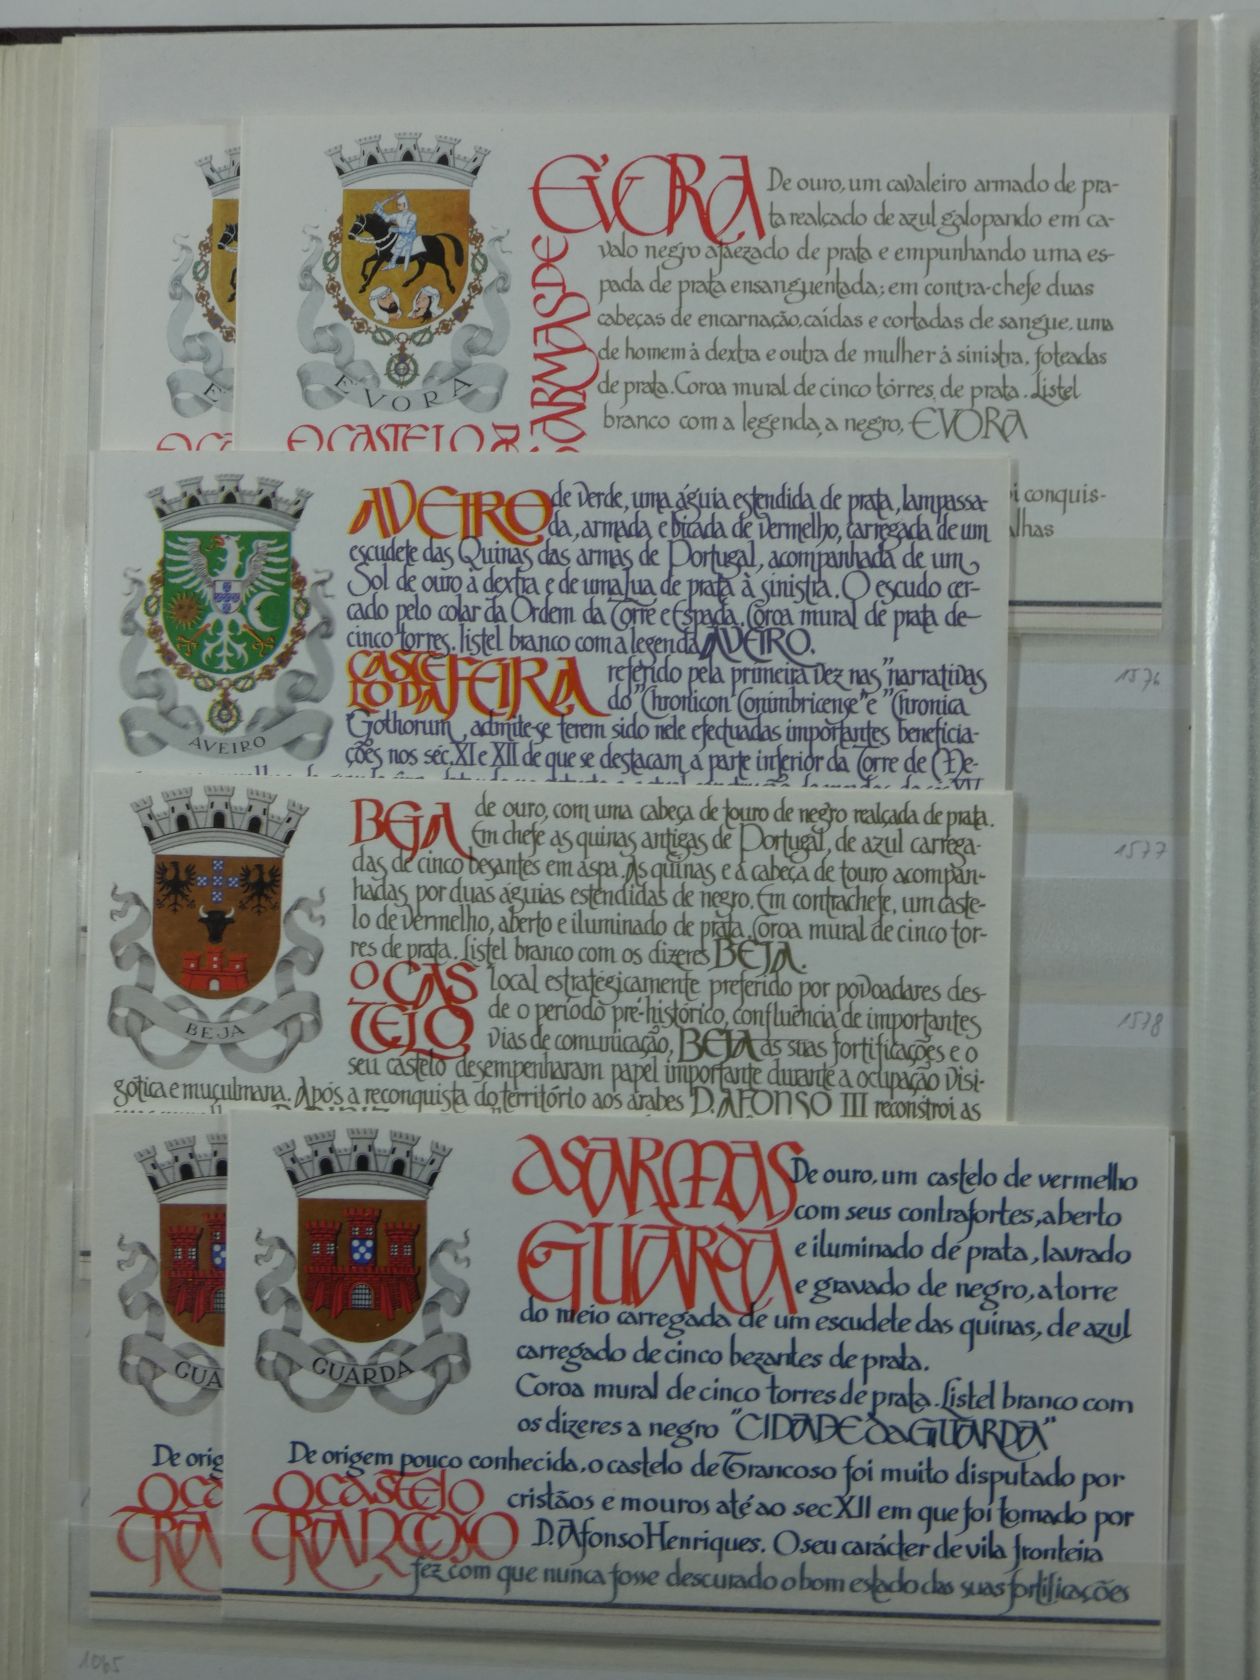 EVORA
De ouro, um cavaleiro armado de pra-
ta realçado de azul galopando em ca-
valo negro ajaezado de prata e empunhando uma es-
pada de prata ensanguentada; em contra-chefe duas
cabeças de encarnação, caídas e cortadas de sangue, uma
de homem à dextra e outra de mulher à sinistra, foteadas
de prata. Coroa mural de cinco tôrres, de prata. Listel
branco com a legenda, a negro, EVORA
AS ARMAS DE
EVORA
O CASTELO
i conquis-
lhas
AVEIRO
de verde, uma águia estendida de prata, lampassa-
da, armada e bicada de vermelho, carregada de um
escudete das Quinas das armas de Portugal, acompanhada de um
Sol de ouro à dextra e de uma Lua de prata à sinistra. O escudo cer-
cado pelo colar da Ordem da Torre e Espada. Coroa mural de prata de
cinco torres. Listel branco com a legenda AVEIRO.
CASTELO DA FEIRA
referido pela primeira vez nas "narrativas
do "Chronicon Conimbricense" e "Chronica
Gothorum", admite-se terem sido nele efectuadas importantes beneficia-
ções nos séc. XI e XII de que se destacam a parte inferior da Torre de Me-
AVEIRO
1576
BEJA
de ouro, com uma cabeça de touro de negro realçada de prata.
Em chefe as quinas antigas de Portugal, de azul carrega-
das de cinco besantes em aspa. As quinas e a cabeça de touro acompan-
hadas, por duas águias estendidas de negro. Em contrachefe, um caste-
lo de vermelho, aberto e iluminado de prata. Coroa mural de cinco tor-
res de prata. Listel branco com os dizeres BEJA.
O CASTELO
local estratégicamente preferido por povoadares des-
de o período pré-histórico, confluência de importantes
vias de comunicação, BEJA as suas fortificações e o
seu castelo desempenharam papel importante durante a ocupação visi-
gótica e muçulmana. Após a reconquista do território aos árabes D. AFONSO III reconstroi as
BEJA
1577
1578
AS ARMAS
GUARDA
De ouro, um castelo de vermelho
com seus contrafortes, aberto
e iluminado de prata, lavrado
e gravado de negro, a torre
do meio carregada de um escudete das quinas, de azul
carregado de cinco bezantes de prata.
Coroa mural de cinco torres de prata. Listel branco com
os dizeres a negro "CIDADE da GUARDA"
GUA
GUARDA
De orig
O CA
TRA
De origem pouco conhecida, o castelo de Trancoso foi muito disputado por
O CASTELO
TRANCOSO
cristãos e mouros até ao sec XII em que foi tomado por
D. Afonso Henriques. O seu carácter de vila fronteira
fez com que nunca fosse descurado o bom estado das suas fortificações
1065